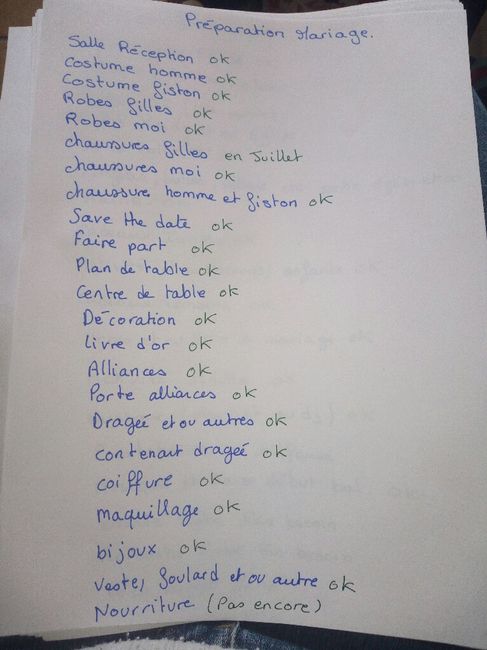 Préparation Mariage.
Salle Réception ok
Costume homme ok
Costume fiston ok
Robes filles ok
Robes moi ok
chaussures filles en Juillet
chaussures moi ok
chaussure homme et fiston ok
Save the date ok
Faire part ok
Plan de table ok
Centre de table ok
Décoration ok
Livre d'or ok
Alliances ok
Porte alliances ok
Drageé et ou autres ok
contenant drageé ok
coiffure ok
maquillage ok
bijoux ok
Veste, foulard et ou autre ok
Nourriture (Pas encore)